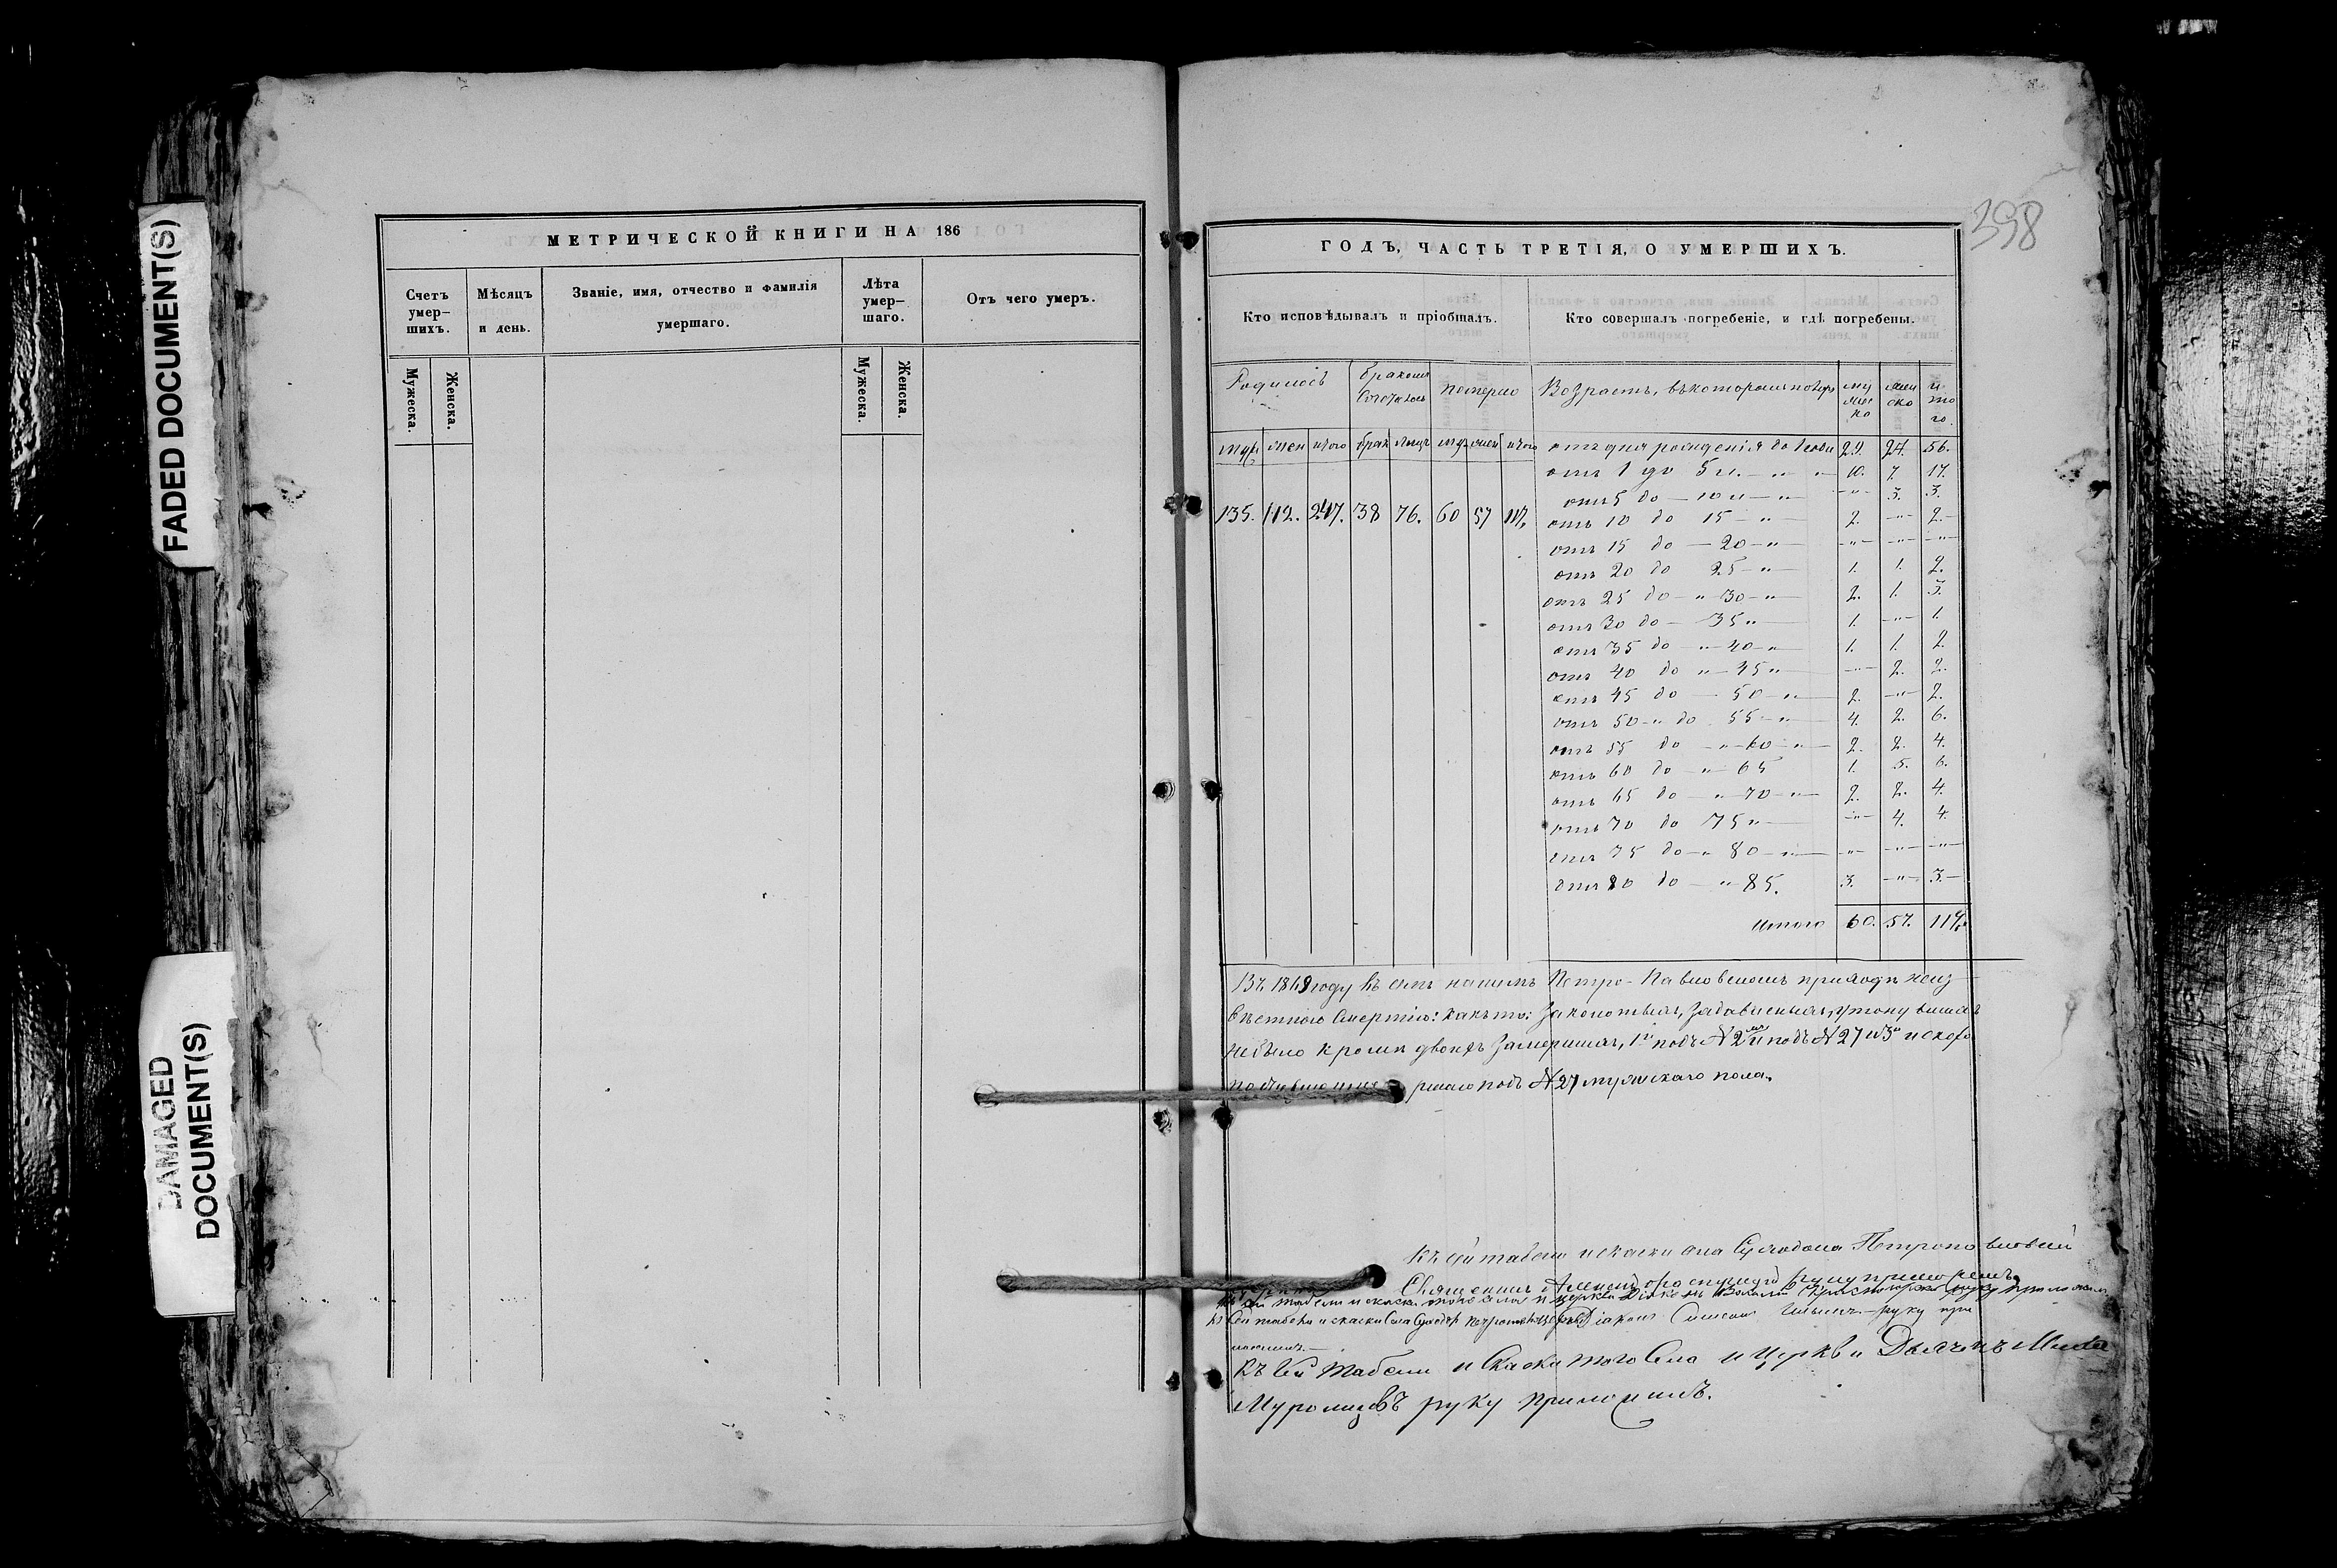 FADED DOCUMENT(S)
DAMAGED
DOCUMENT(S)
МЕТРИЧЕСКОЙ КНИГИ НА 186
Счетъ умер- шихъ.
Мѣсяцъ и день.
Званіе, имя, отчество и фамилія умершаго.
Лѣта умер- шаго.
Отъ чего умеръ.
Мужеска. Женска. Мужеска. Женска.
398
ГОДЪ, ЧАСТЬ ТРЕТІЯ, О УМЕРШИХЪ.
Кто исповѣдывалъ и пріобщалъ.
Кто совершалъ погребеніе, и гдѣ погребены.
Родилось Бракомъ померло Возрастъ, въ которомъ муж ска жен ска и то го.
муж жен итого брак лицъ муж жен итого
135. 112. 247. 38 76. 60 57 117.
отъ дня рожденія до 1 года 29. 27. 56.
отъ 1 до 5 " 10. 7. 17.
отъ 5 до 10 " " 3. 3.
отъ 10 до 15 " 2. " 2.
отъ 15 до 20 " " " "
отъ 20 до 25 " 1. 1. 2.
отъ 25 до " 30 " 2. 1. 3.
отъ 30 до 35 " 1. " 1.
отъ 35 до " 40 " 1. 1. 2.
отъ 40 до " 45 " " 2. 2.
отъ 45 до 50 " 2. " 2.
отъ 50 " до 55 " 4. 2. 6.
отъ 55 до " 60 " 2. 2. 4.
отъ 60 до " 65 1. 5. 6.
отъ 65 до " 70 " 2. 2. 4.
отъ 70 до 75 " " 4. 4.
отъ 75 до " 80 " " " "
отъ 80 до " 85. 3. " 3.
Итого 60. 57. 117.
Въ году въ семъ нашемъ Петро-Павловскомъ приходѣ неиз
вѣстною смертію: какъ то:
небыло кромѣ двоихъ замершихъ, подъ № 2 и подъ № 27 и скоро
подъ № 27 мужскаго пола.
Къ сей табели и скаски села Петропавловской
Священникъ руку приложилъ
Къ сей табели и скаски того села и церкви Діаконъ руку приложилъ
Къ сей табели и скаски села Діаконъ руку при
ложилъ.
Къ сей табели и скаски того села и церкви Дьячекъ
Муромцовъ руку приложилъ.